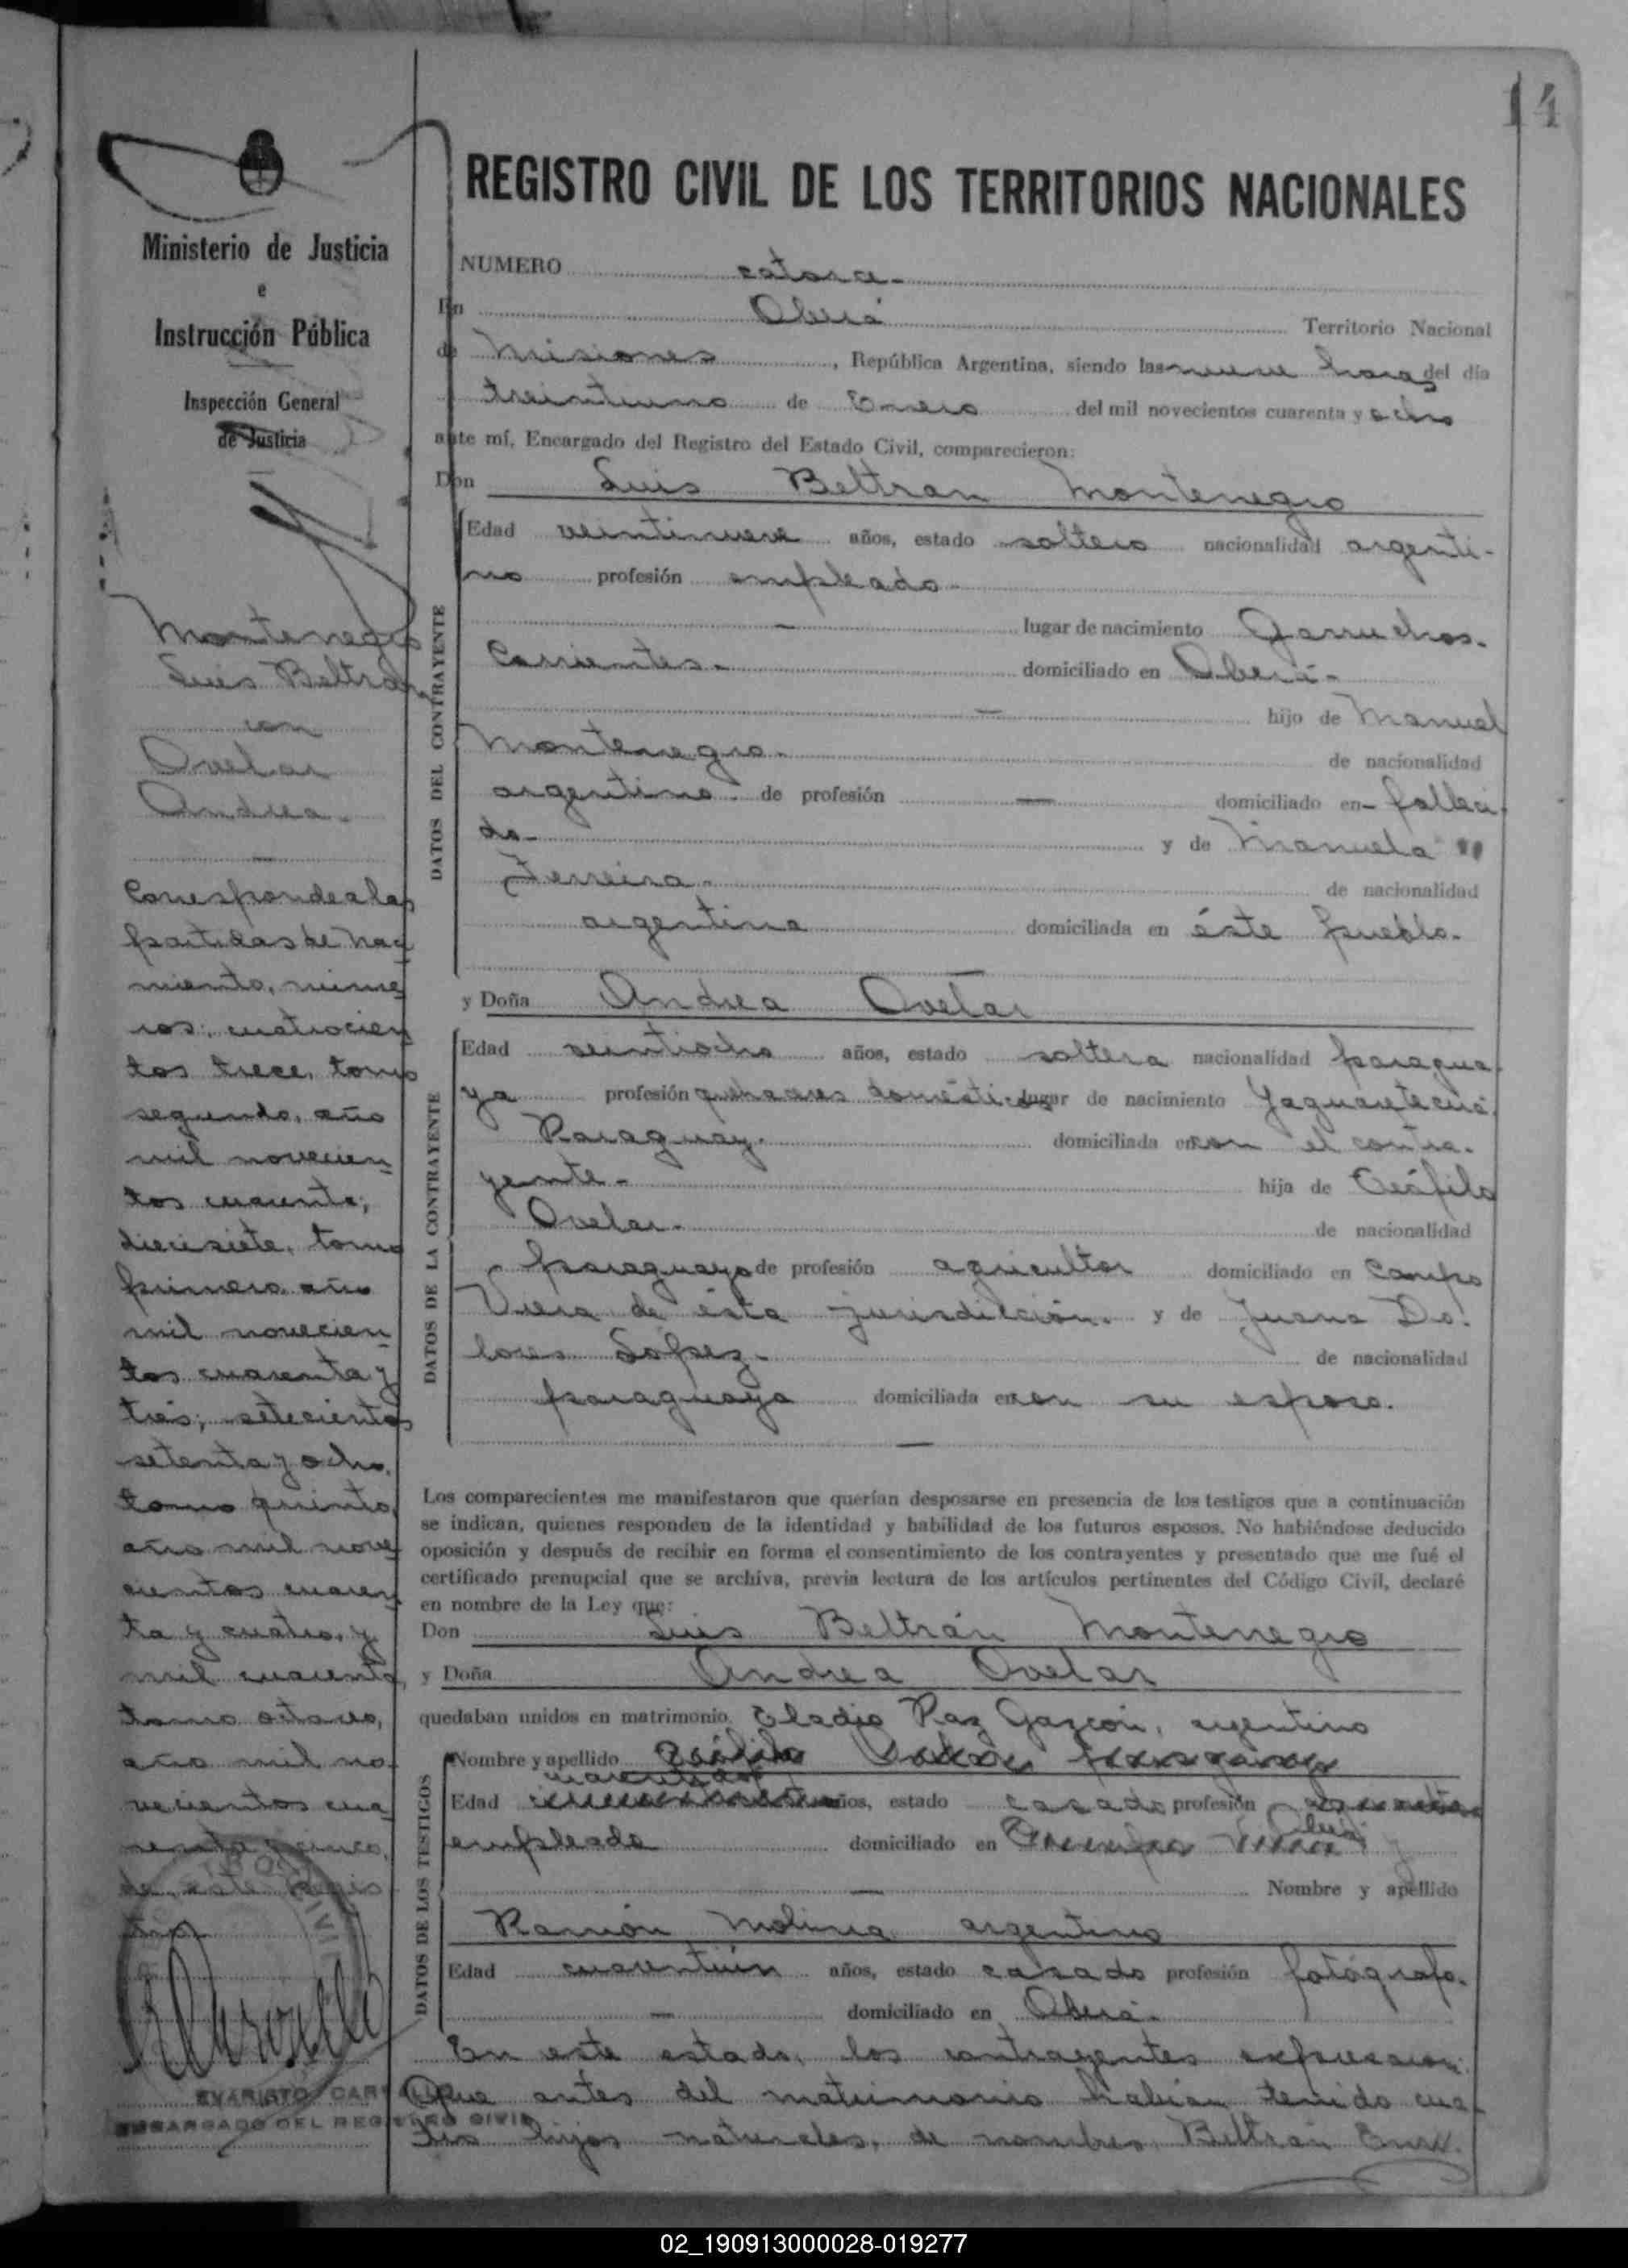 14
Ministerio de Justicia
e
Instrucción Pública
Inspección General
de Justicia
Montenegro
Luis Beltrán
con
Ovelar
Andrea.-
Corresponde a las
partidas de naci
miento, núme
ros: cuatrocien
tos trece, tomo
segundo, año
mil novecien
tos cuarenta;
diecisiete, tomo
primero, año
mil novecien
tos cuarenta y
trés; setecientos
setenta y ocho,
tomo quinto,
año mil nove
cientos cuaren
ta y cuatro, y
mil cuarenta,
tomo octavo,
año mil no
vecientos cua
renta y cinco,
de este Regis
tro
EVARISTO
ENCARGADO DEL REGISTRO CIVIL
REGISTRO CIVIL DE LOS TERRITORIOS NACIONALES
NUMERO catorce.-
En Oberá Territorio Nacional
de Misiones, República Argentina, siendo las nueve horas del día
treintiuno de Enero del mil novecientos cuarenta y ocho
ante mí, Encargado del Registro del Estado Civil, comparecieron:
Don Luis Beltran Montenegro
DATOS DEL CONTRAYENTE
Edad veintinueve años, estado soltero nacionalidad argenti-
no profesión empleado.-
lugar de nacimiento Garruchos.-
Corrientes.- domiciliado en Oberá.-
hijo de Manuel
Montenegro.- de nacionalidad
argentino.- de profesión — domiciliado en- falleci-
do.- y de Manuela
Ferreira.- de nacionalidad
argentina domiciliada en éste pueblo.-
y Doña Andrea Ovelar
DATOS DE LA CONTRAYENTE
Edad veintiocho años, estado soltera nacionalidad paragua-
ya profesión quehaceres domésticos lugar de nacimiento Yaguaretecué.
Paraguay.- domiciliada en con el contra-
yente.- hija de Teófilo
Ovelar.- de nacionalidad
paraguayo de profesión agricultor domiciliado en Campo
Viera de ésta jurisdicción.- y de Juana Do-
lores López.- de nacionalidad
paraguaya domiciliada en con su esposo.
Los comparecientes me manifestaron que querían desposarse en presencia de los testigos que a continuación
se indican, quienes responden de la identidad y habilidad de los futuros esposos. No habiéndose deducido
oposición y después de recibir en forma el consentimiento de los contrayentes y presentado que me fué el
certificado prenupcial que se archiva, previa lectura de los artículos pertinentes del Código Civil, declaré
en nombre de la Ley que:
Don Luis Beltrán Montenegro
y Doña Andrea Ovelar
quedaban unidos en matrimonio. Eladio Paz Gazcón, argentino
DATOS DE LOS TESTIGOS
Nombre y apellido Teófilo
Edad años, estado casado profesión
empleado domiciliado en Campo Viera
Nombre y apellido
Ramón Molina argentino
Edad cuarentiún años, estado casado profesión fotógrafo.
domiciliado en Oberá.-
En este estado, los contrayentes expresaron:
Que antes del matrimonio habían tenido cua-
tro hijos naturales, de nombres Beltrán Enri-
02_190913000028-019277